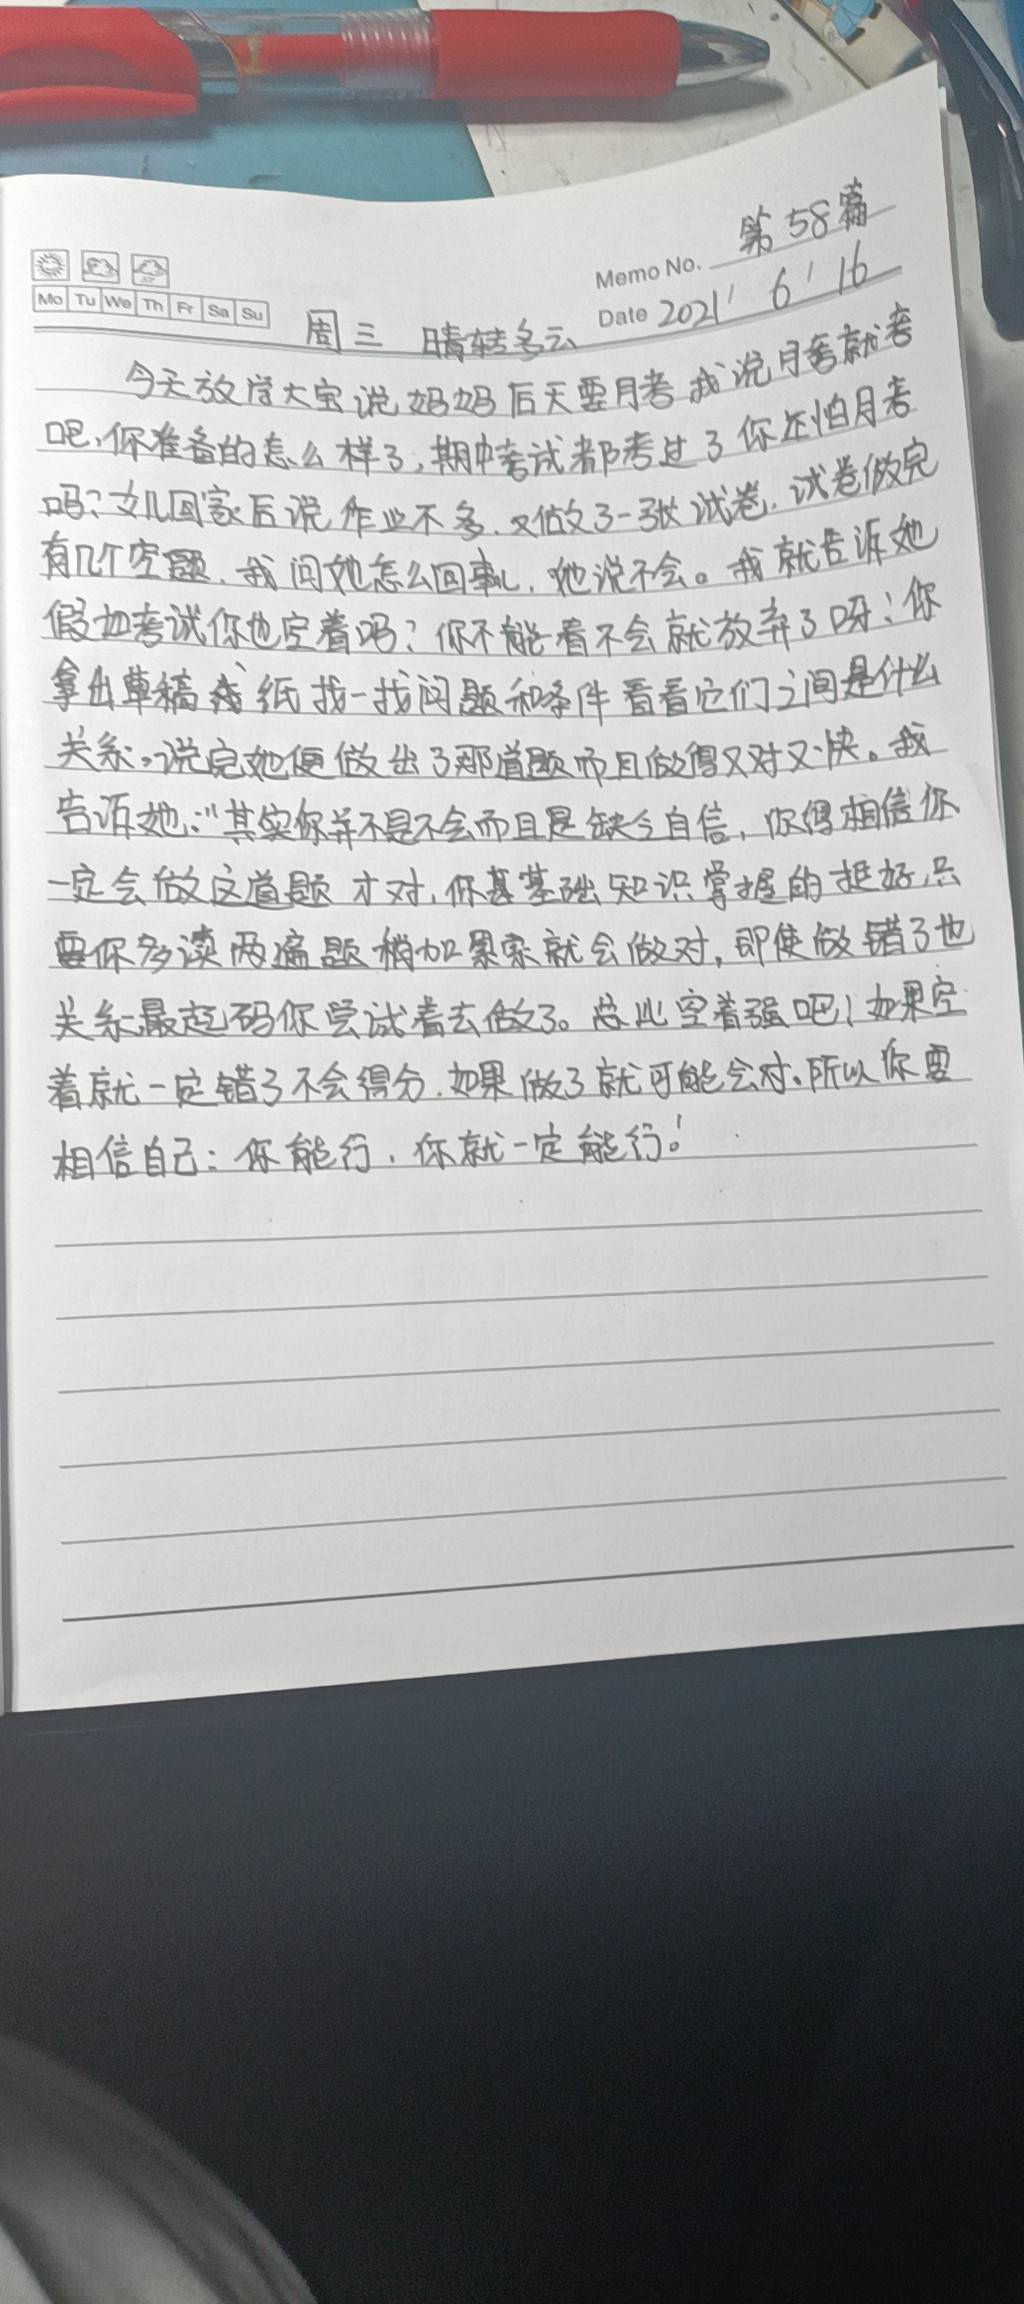 第58篇
Memo No.
Mo Tu We Th Fr Sa Su
Date 2021 / 6 / 16
周三 晴转多云
今天放学大宝说妈妈后天要月考我说月考就考
吧,你准备的怎么样了,期中考试都考过了你还怕月考
吗?女儿回家后说作业不多,又做了一张试卷.试卷做完
有几个空题.我问她怎么回事儿.她说不会。我就告诉她
假如考试你也空着吗?你不能看不会就放弃了呀!你
拿出草稿纸找一找问题和条件看看它们之间是什么
关系。说完她便做出了那道题而且做得又对又快。我
告诉她:"其实你并不是不会而且是缺乏自信,你得相信你
一定会做这道题才对,你基础知识掌握的挺好只
要你多读两遍题稍加思索就会做对,即使做错了也
关系最起码你尝试着去做了。总比空着强吧!如果空
着就一定错了不会得分.如果做了就可能会对.所以你要
相信自己:你能行,你就一定能行!